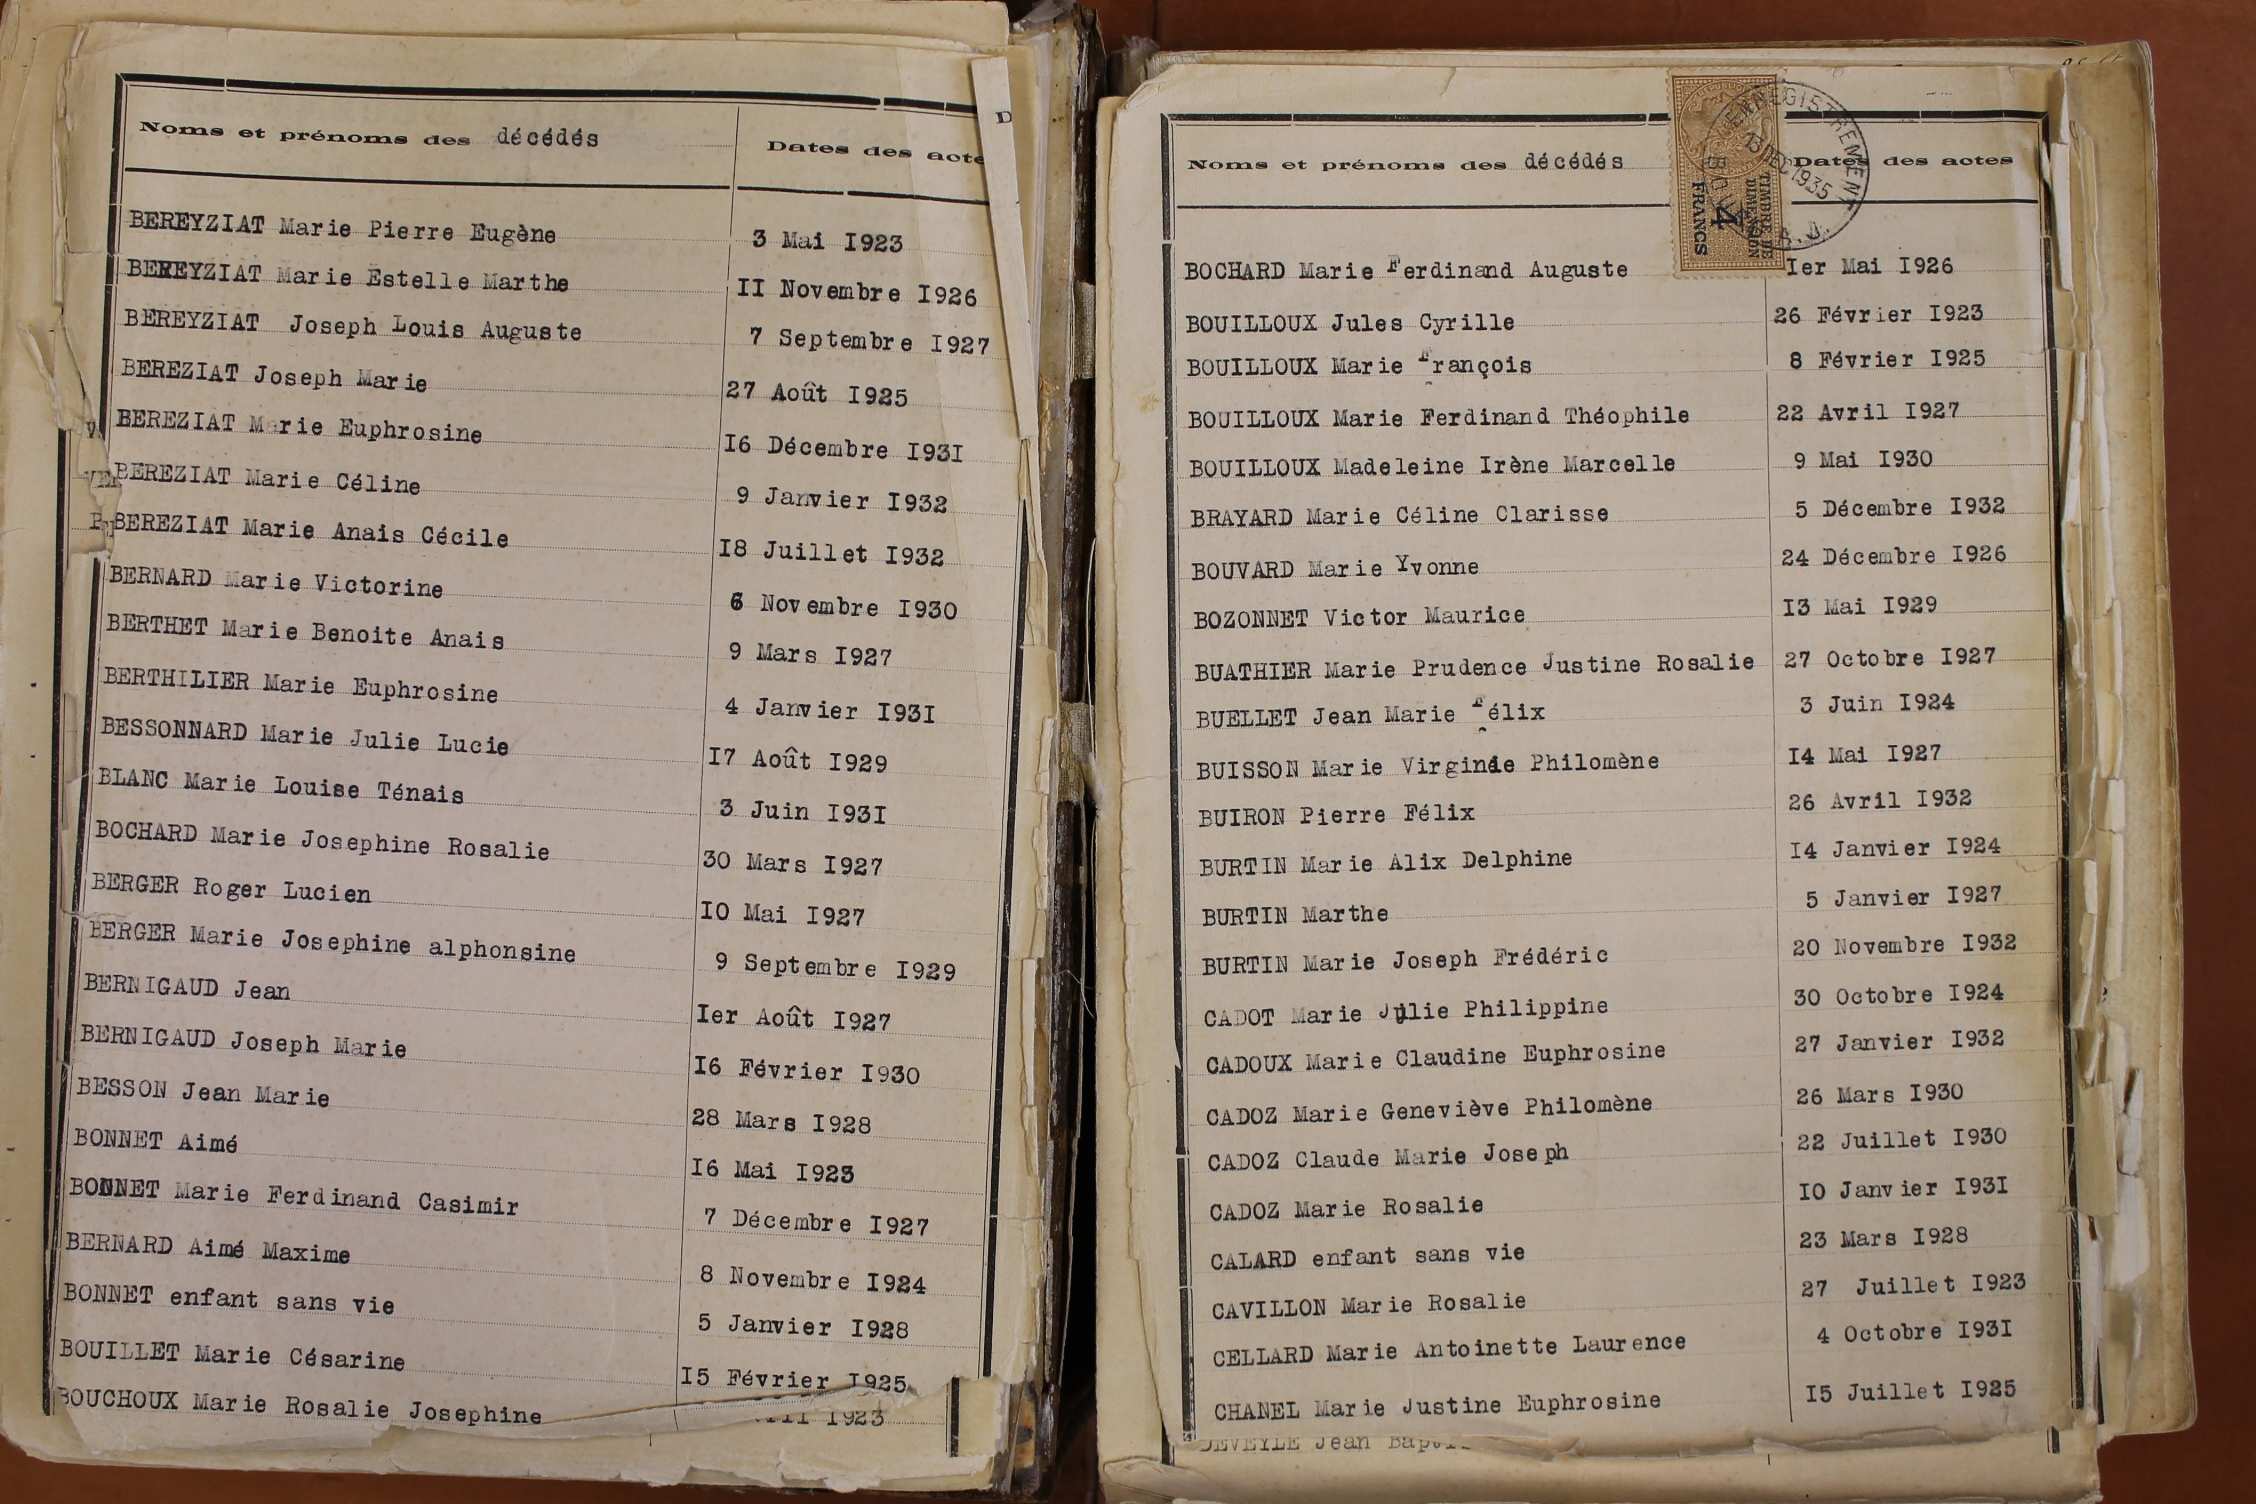 Noms et prénoms des décédés Dates des acte
BEREYZIAT Marie Pierre Eugène 3 Mai I923
BEREYZIAT Marie Estelle Marthe II Novembre I926
BEREYZIAT Joseph Louis Auguste 7 Septembre I927
BEREZIAT Joseph Marie 27 Août I925
BEREZIAT Marie Euphrosine I6 Décembre I93I
BEREZIAT Marie Céline 9 Janvier I932
BEREZIAT Marie Anais Cécile I8 Juillet I932
BERNARD Marie Victorine 6 Novembre I930
BERTHET Marie Benoite Anais 9 Mars I927
BERTHILIER Marie Euphrosine 4 Janvier I93I
BESSONNARD Marie Julie Lucie I7 Août I929
BLANC Marie Louise Ténais 3 Juin I93I
BOCHARD Marie Josephine Rosalie 30 Mars I927
BERGER Roger Lucien I0 Mai I927
BERGER Marie Josephine alphonsine 9 Septembre I929
BERNIGAUD Jean Ier Août I927
BERNIGAUD Joseph Marie I6 Février I930
BESSON Jean Marie 28 Mars I928
BONNET Aimé I6 Mai I923
BONNET Marie Ferdinand Casimir 7 Décembre I927
BERNARD Aimé Maxime 8 Novembre I924
BONNET enfant sans vie 5 Janvier I928
BOUILLET Marie Césarine I5 Février I925
BOUCHOUX Marie Rosalie Josephine I923
Noms et prénoms des décédés Dates des actes
ENREGISTREMENT
13 DEC 1935
TIMBRE DE
DIMENSION
4
FRANCS
BOCHARD Marie Ferdinand Auguste Ier Mai I926
BOUILLOUX Jules Cyrille 26 Février I923
BOUILLOUX Marie François 8 Février I925
BOUILLOUX Marie Ferdinand Théophile 22 Avril I927
BOUILLOUX Madeleine Irène Marcelle 9 Mai I930
BRAYARD Marie Céline Clarisse 5 Décembre I932
BOUVARD Marie Yvonne 24 Décembre I926
BOZONNET Victor Maurice I3 Mai I929
BUATHIER Marie Prudence Justine Rosalie 27 Octobre I927
BUELLET Jean Marie Félix 3 Juin I924
BUISSON Marie Virginie Philomène I4 Mai I927
BUIRON Pierre Félix 26 Avril I932
BURTIN Marie Alix Delphine I4 Janvier I924
BURTIN Marthe 5 Janvier I927
BURTIN Marie Joseph Frédéric 20 Novembre I932
CADOT Marie Julie Philippine 30 Octobre I924
CADOUX Marie Claudine Euphrosine 27 Janvier I932
CADOZ Marie Geneviève Philomène 26 Mars I930
CADOZ Claude Marie Joseph 22 Juillet I930
CADOZ Marie Rosalie I0 Janvier I93I
CALARD enfant sans vie 23 Mars I928
CAVILLON Marie Rosalie 27 Juillet I923
CELLARD Marie Antoinette Laurence 4 Octobre I93I
CHANEL Marie Justine Euphrosine I5 Juillet I925
DEVEYLE Jean